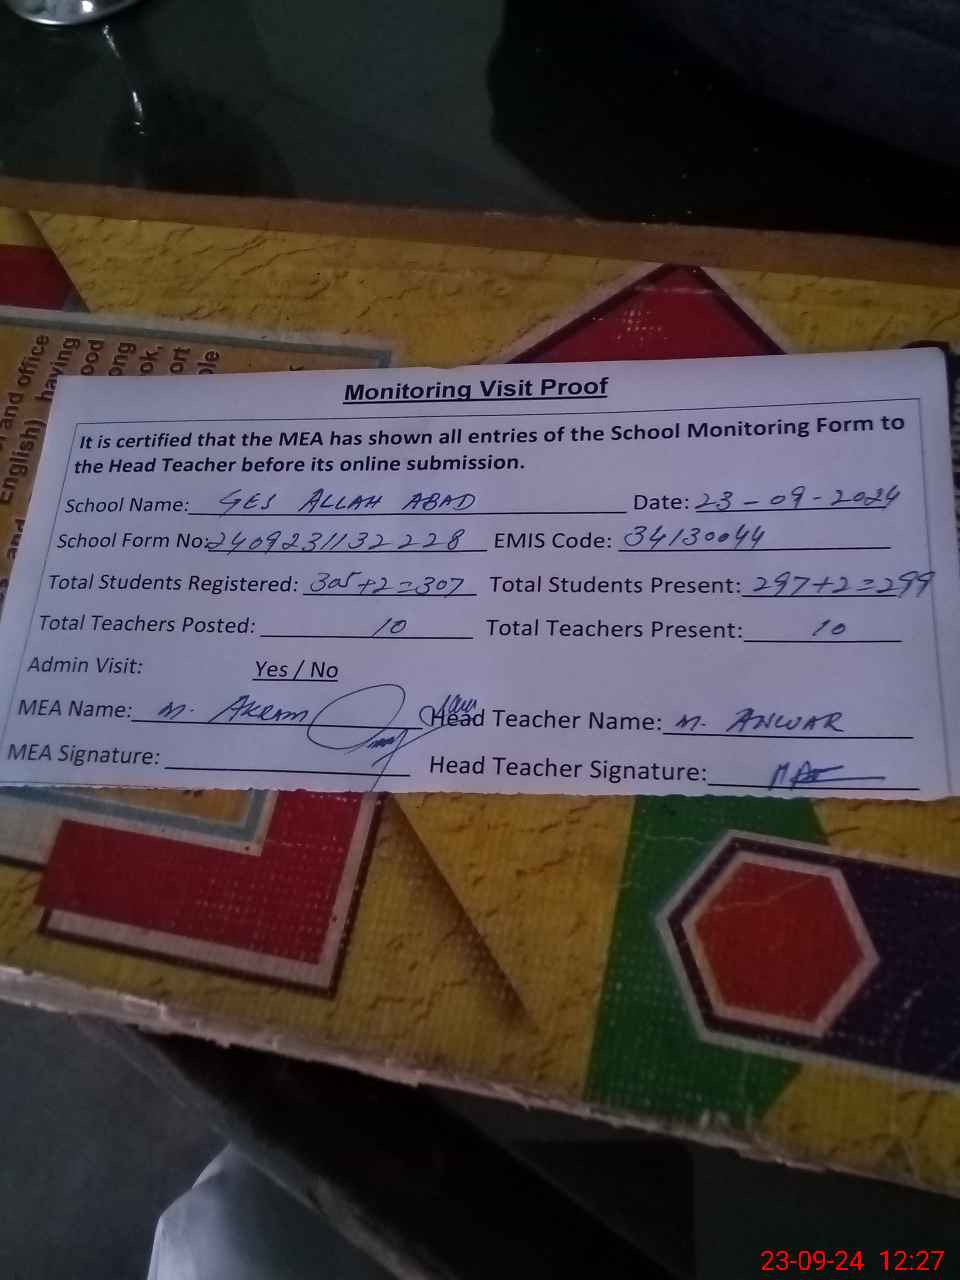 and office
English) having
ood
ong
ok,
ort
ple
and
Monitoring Visit Proof
It is certified that the MEA has shown all entries of the School Monitoring Form to
the Head Teacher before its online submission.
School Name: GES ALLAH ABAD Date: 23-09-2024
School Form No: 2409231132228 EMIS Code: 34130044
Total Students Registered: 305+2=307 Total Students Present: 297+2=299
Total Teachers Posted: 10 Total Teachers Present: 10
Admin Visit: Yes / No
MEA Name: M. AKRAM Head Teacher Name: M. ANWAR
MEA Signature: Head Teacher Signature:
23-09-24 12:27